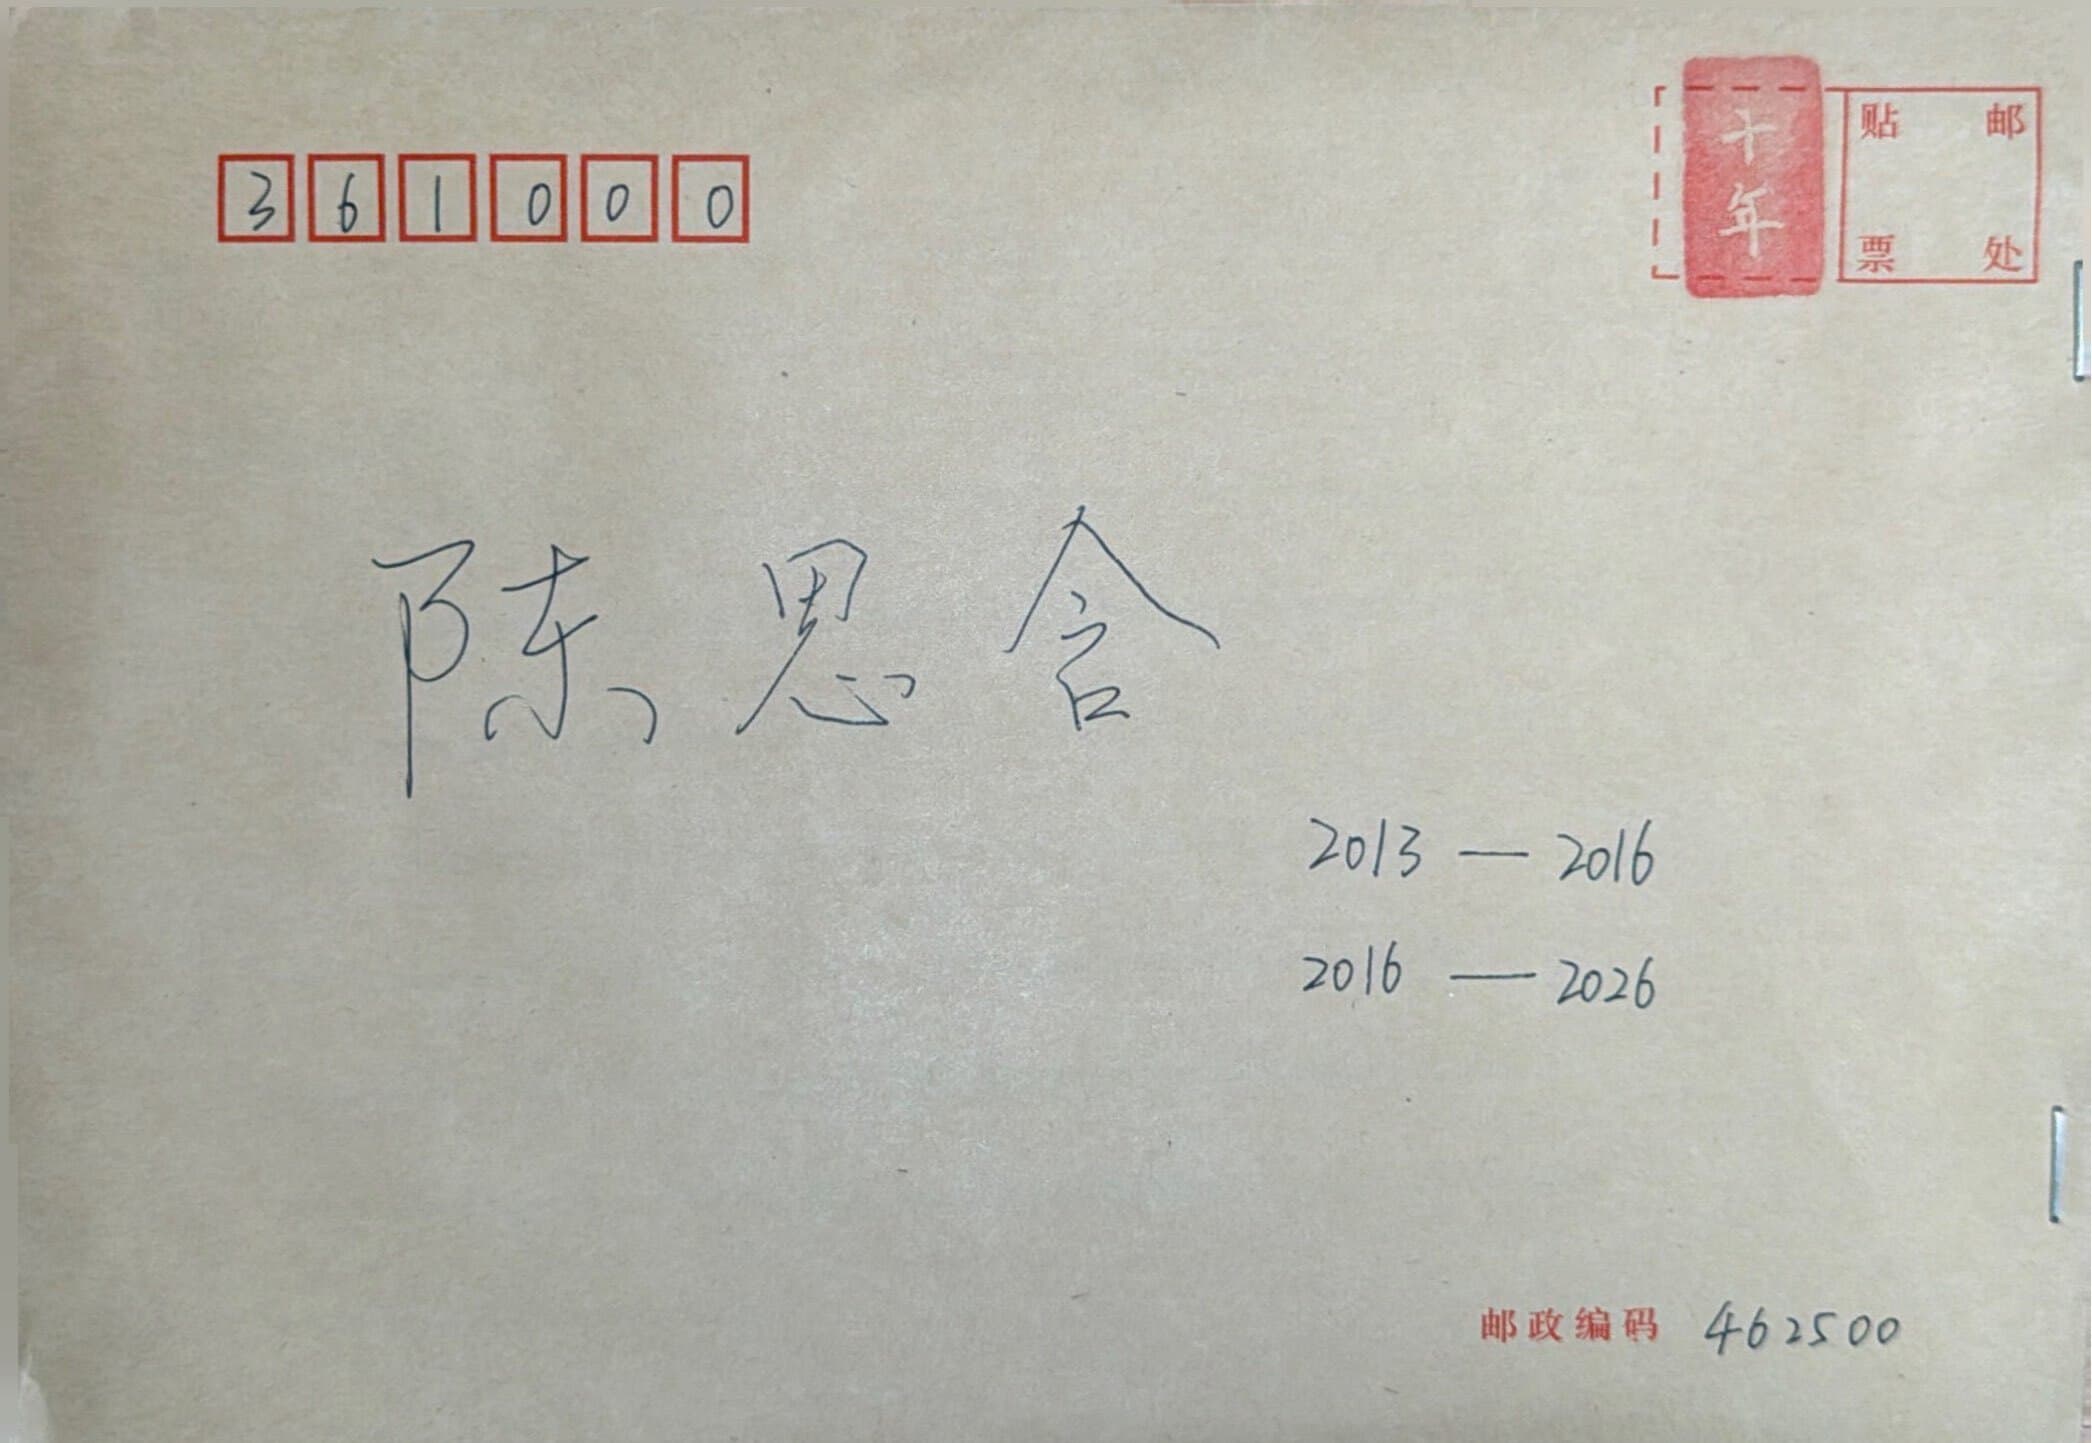 361000
十年
贴 邮
票 处
陈思含
2013 — 2016
2016 — 2026
邮政编码 462500